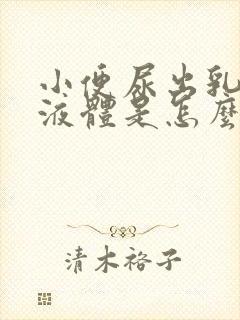 小便尿出乳
液體是怎麼
清木裕子